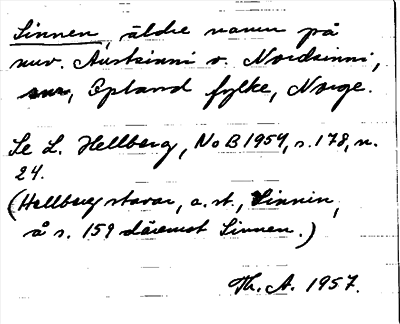 Sinnen, äldre namn på
nuv. Austsinni o. Nordsinni,
snr, Opland fylke, Norge.
Se L. Hellberg, NoB 1954, s. 178, n.
24.
(Hellberg stavar, a. st., Sinnin,
å s. 159 däremot Sinnen.)
Th. A. 1957.